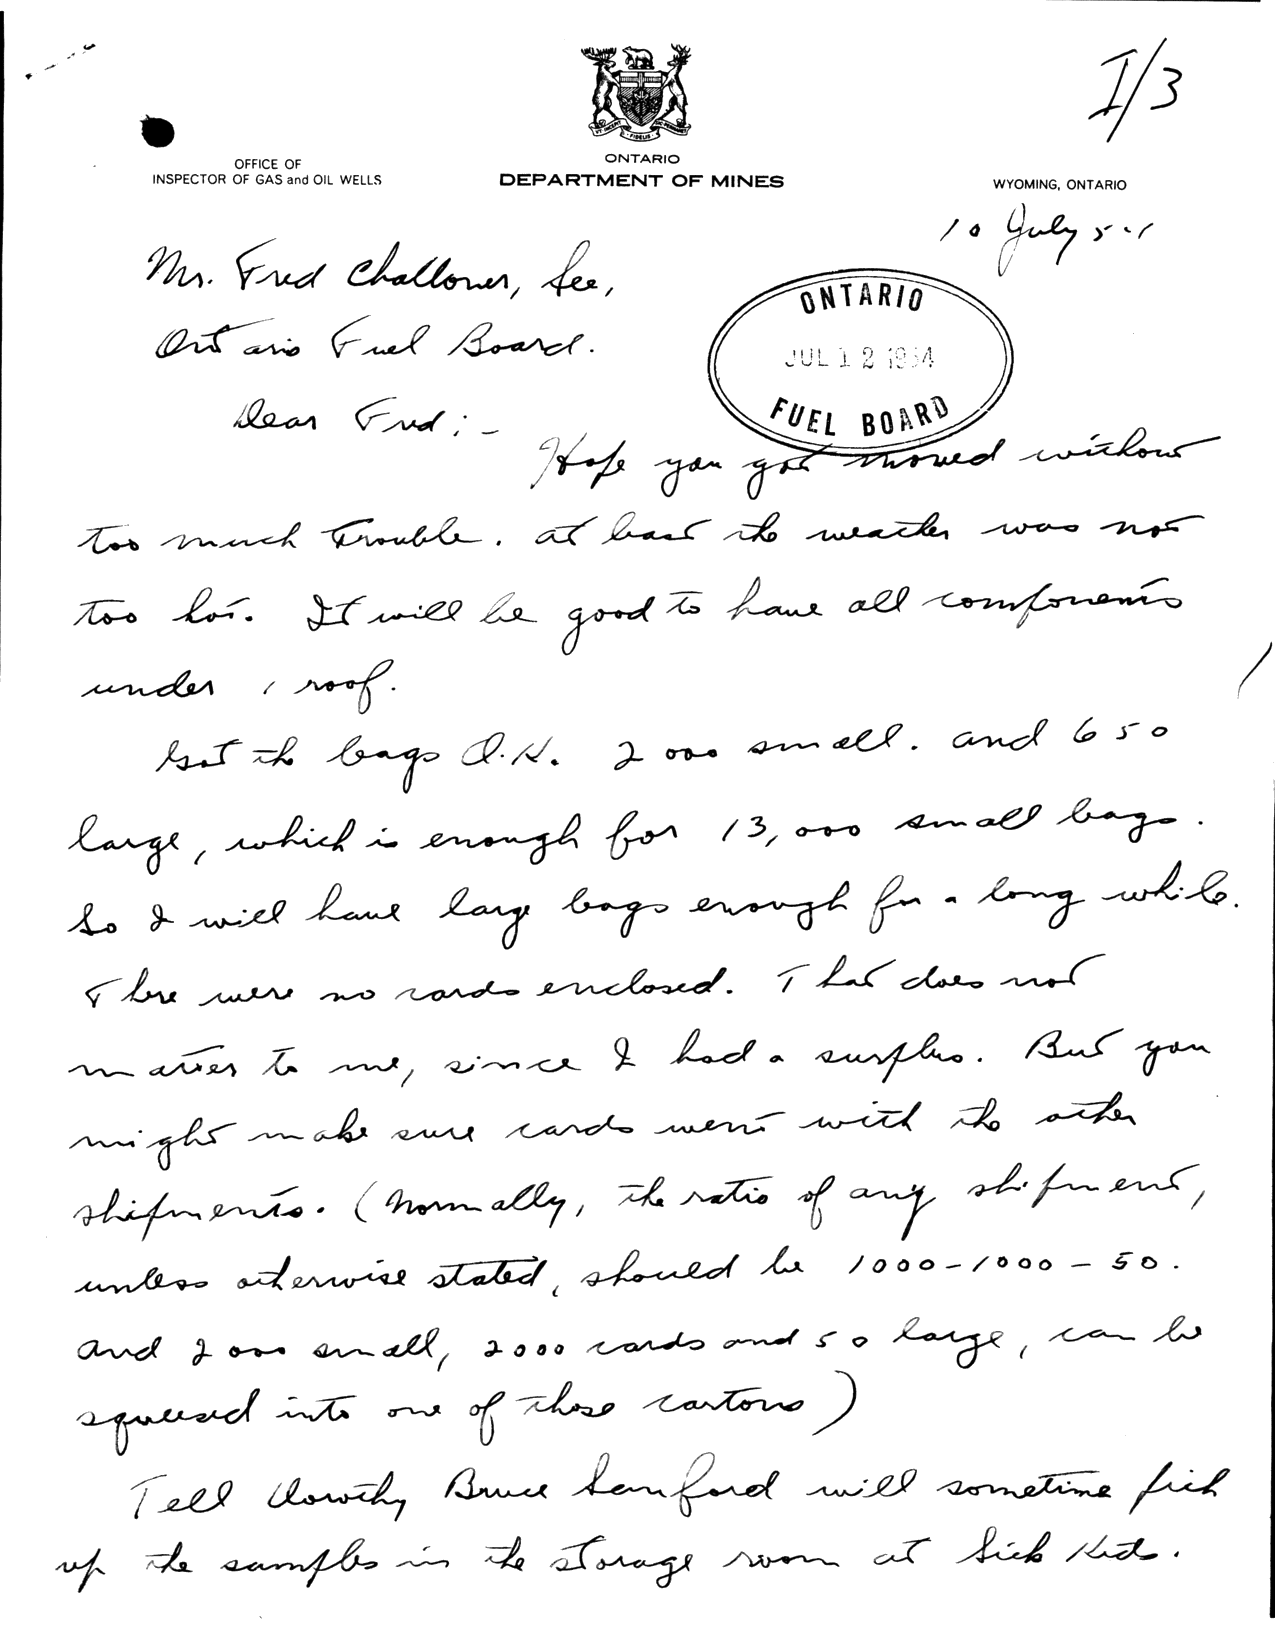 I/3
OFFICE OF
INSPECTOR OF GAS and OIL WELLS
ONTARIO
DEPARTMENT OF MINES
WYOMING, ONTARIO
10 July 54
Mr. Fred Challoner, Sec,
Ontario Fuel Board.
ONTARIO
JUL 12 1954
FUEL BOARD
Dear Fred:-
Hope you got moved without
too much trouble. At least the weather was not
too hot. It will be good to have all components
under 1 roof.
Got the bags O.K. 2000 small. and 650
large, which is enough for 13,000 small bags.
So I will have large bags enough for a long while.
There were no cards enclosed. That does not
matter to me, since I had a surplus. But you
might make sure cards went with the other
shipments. (Normally, the ratio of any shipment,
unless otherwise stated, should be 1000-1000-50.
And 2000 small, 2000 cards and 50 large, can be
squeesed into one of those cartons)
Tell Dorothy Bruce Sanford will sometime pick
up the samples in the storage room at Sick Kids.